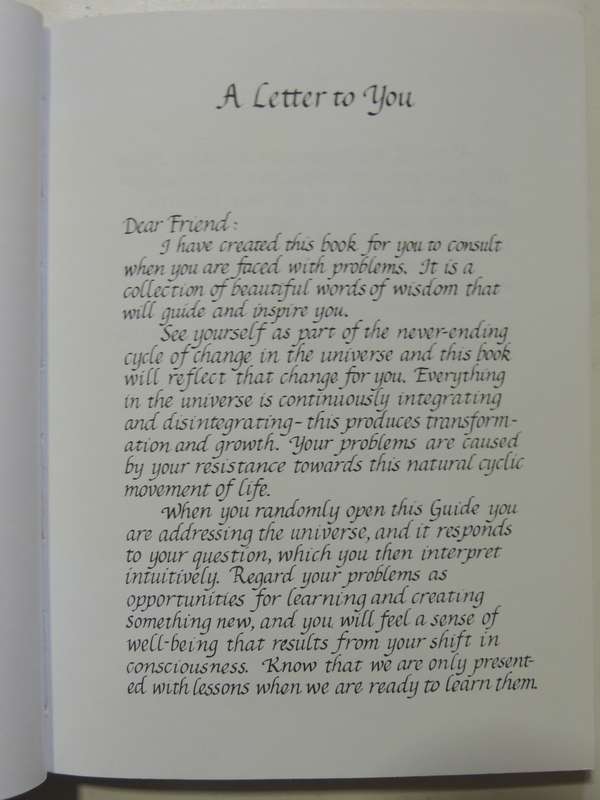 A Letter to You
Dear Friend:
I have created this book for you to consult
when you are faced with problems. It is a
collection of beautiful words of wisdom that
will guide and inspire you.
See yourself as part of the never-ending
cycle of change in the universe and this book
will reflect that change for you. Everything
in the universe is continuously integrating
and disintegrating - this produces transform-
ation and growth. Your problems are caused
by your resistance towards this natural cyclic
movement of life.
When you randomly open this Guide you
are addressing the universe, and it responds
to your question, which you then interpret
intuitively. Regard your problems as
opportunities for learning and creating
something new, and you will feel a sense of
well-being that results from your shift in
consciousness. Know that we are only present-
ed with lessons when we are ready to learn them.